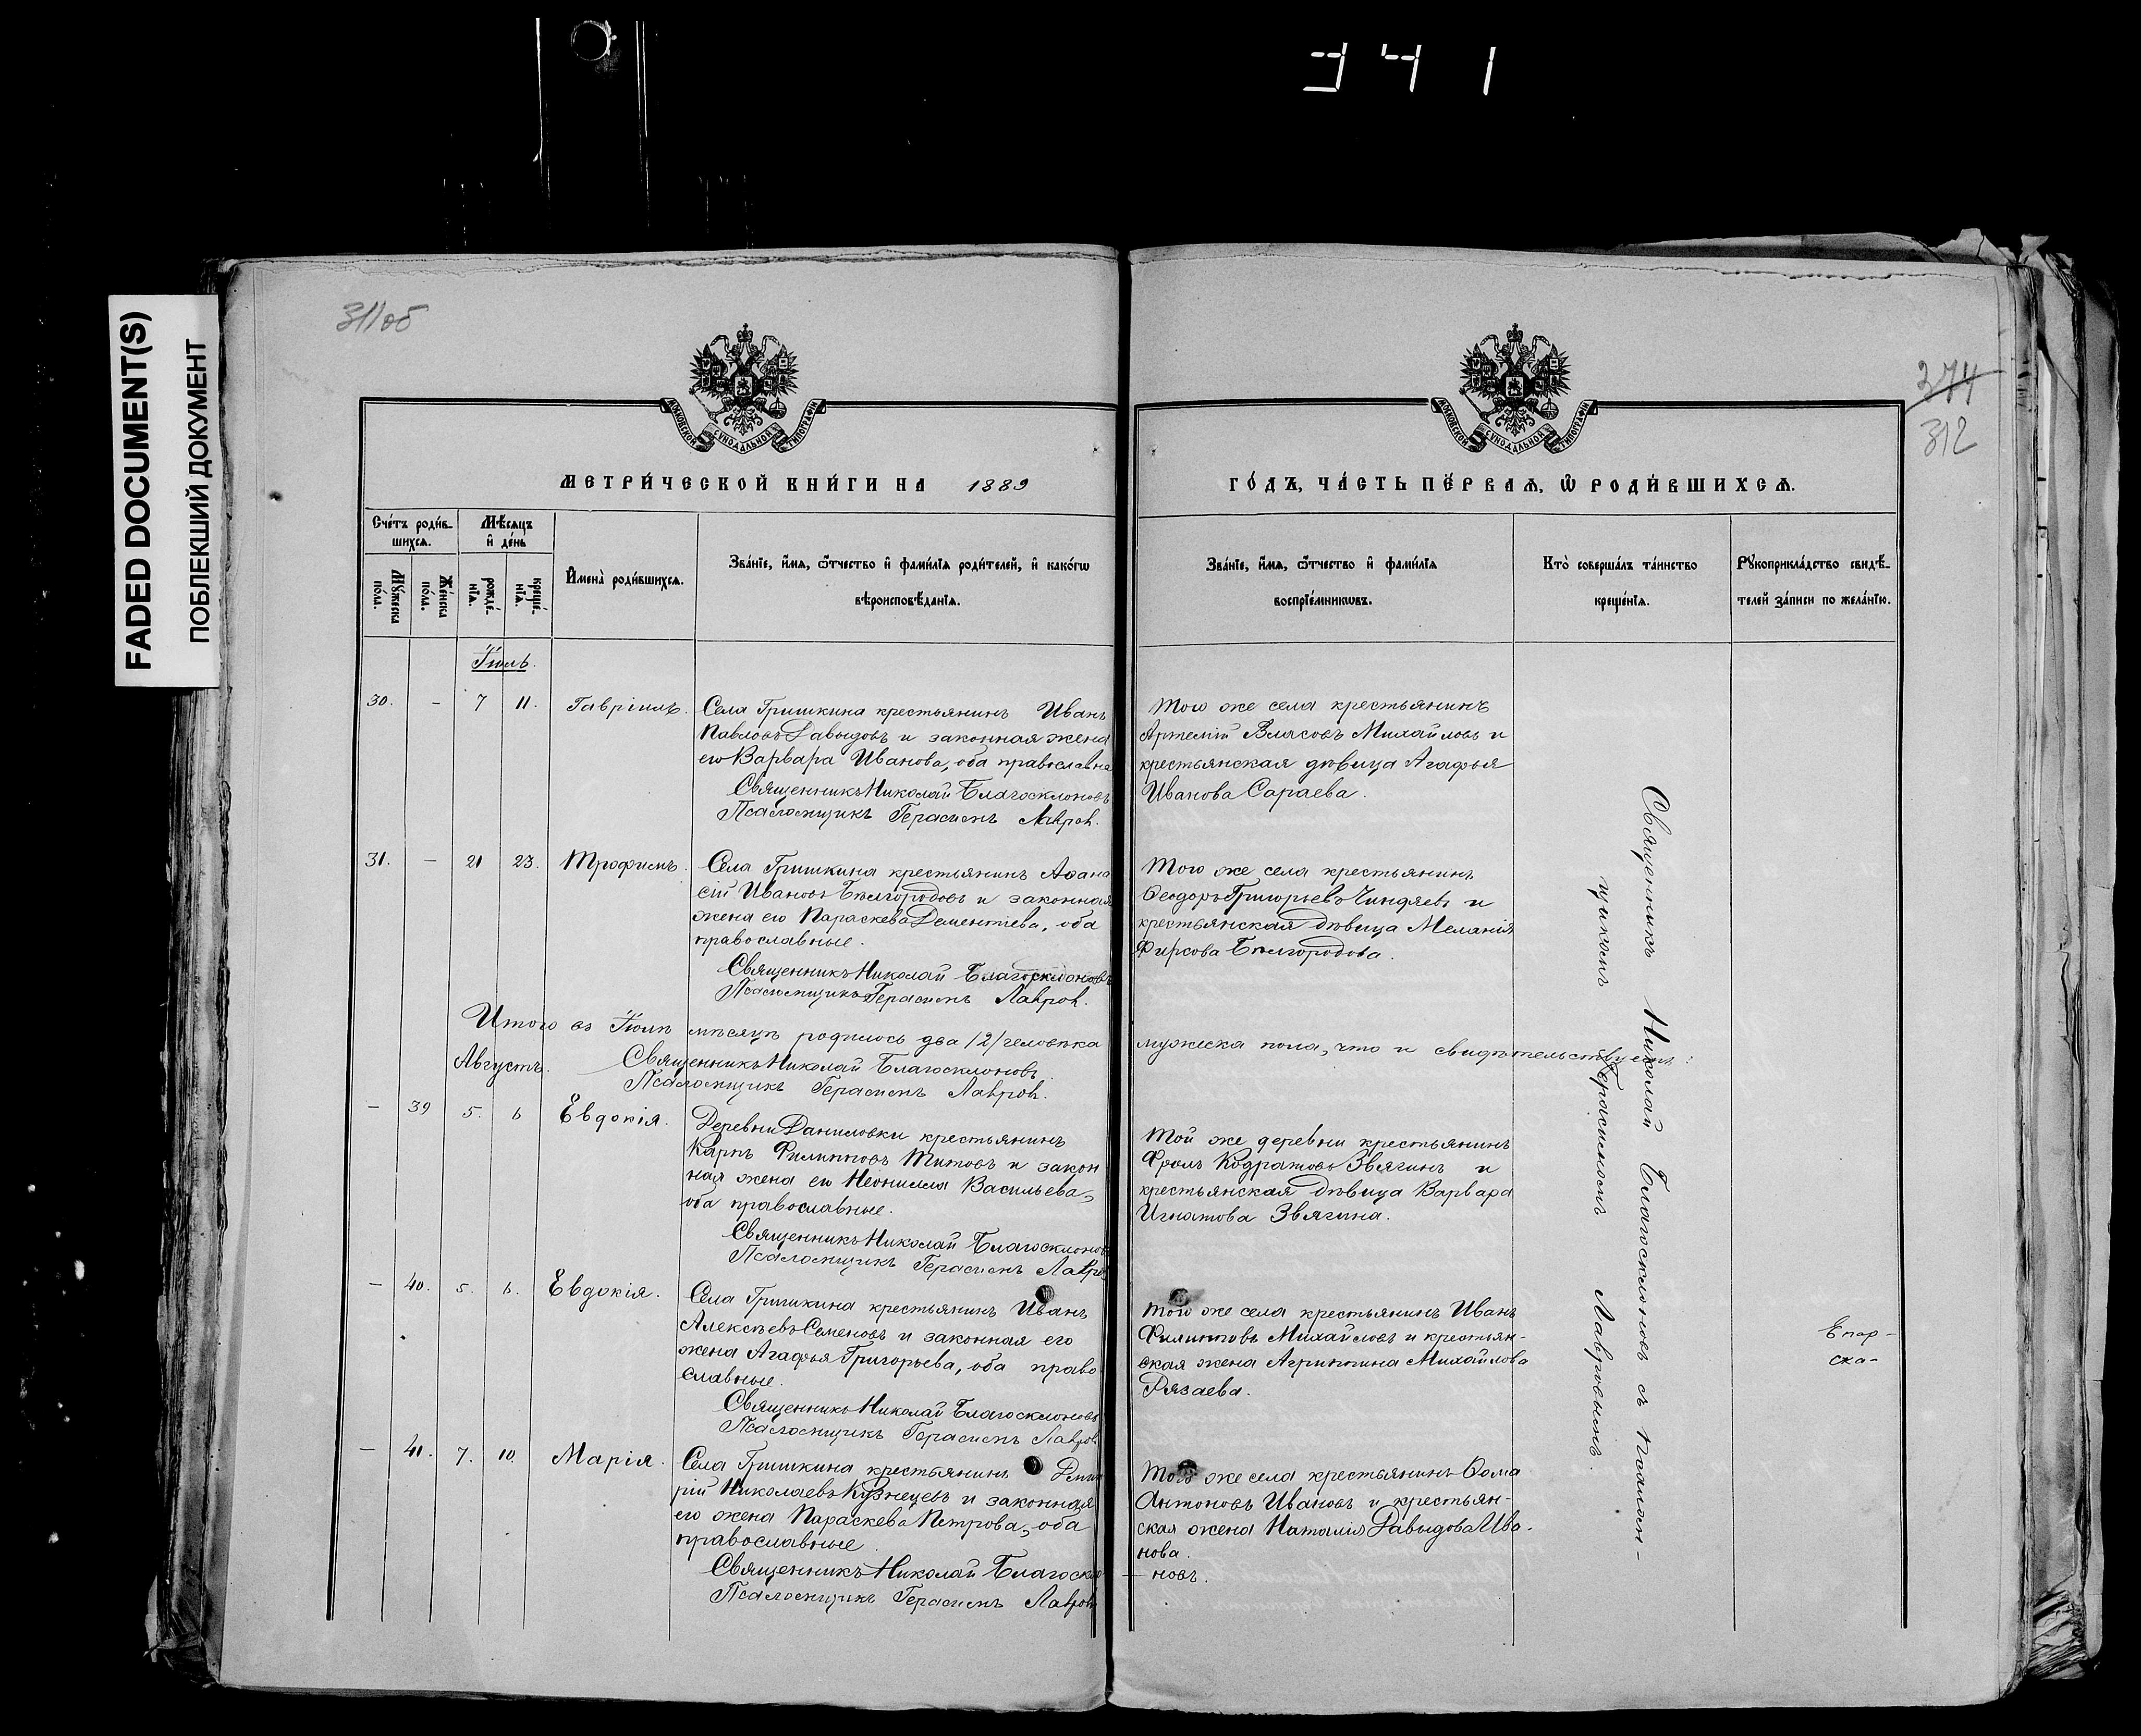 341
FADED DOCUMENT(S)
ПОБЛЕКШИЙ ДОКУМЕНТ
311об
374
312
МОСКОВСКОЙ СУНОДАЛЬНОЙ ТИПОГРАФІИ
МОСКОВСКОЙ СУНОДАЛЬНОЙ ТИПОГРАФІИ
МЕТРИ́ЧЕСКОЙ КНИ́ГИ НА 1889
ГО́ДЪ, ЧА́СТЬ ПЕ́РВАѦ, Ѡ҆ РОДИ́ВШИХСѦ.
Сче́тъ роди́в-
шихсѧ.
Мѣ́сѧцъ
и҆ де́нь
Мꙋжеска
по́ла.
Же́нска
по́ла.
рожде́-
нїѧ.
креще́-
нїѧ.
И҆мена̀ роди́вшихсѧ.
Зва́нїе, и҆́мѧ, ѻ҆́тчество и҆ фами́лїѧ роди́телей, и҆ како́гѡ
вѣроисповѣ́данїѧ.
Зва́нїе, и҆́мѧ, ѻ҆́тчество и҆ фами́лїѧ
воспрїе́мникѡвъ.
Кто̀ соверша́лъ та́инство
креще́нїѧ.
Рꙋкоприкла́дство свидѣ́-
телей за́писи по жела́нїю.
Іюль.
30. - 7 11. Гавріилъ.
Села Гришкина крестьянинъ Иванъ
Павловъ Давыдовъ и законная жена
его Варвара Иванова, оба православна
Священникъ Николай Благосклоновъ
Псаломщикъ Герасимъ Лавров.
Того же села крестьянинъ
Артемій Власовъ Михайловъ и
крестьянская дѣвица Агафья
Иванова Сараева.
31. - 21 23. Трофимъ.
Села Гришкина крестьянинъ Аѳана
сій Ивановъ Бѣлгородовъ и законная
жена его Параскева Дементіева, оба
православные.
Священникъ Николай Благосклоновъ
Псаломщикъ Герасимъ Лавров.
Того же села крестьянинъ
Ѳеодоръ Григорьевъ Чиндяевъ и
крестьянская дѣвица Меланія
Фирсова Бѣлгородова.
Итого въ Іюлѣ мѣсяцѣ родилось два /2/ человѣка мужеска пола, что и свидѣтельствуемъ:
Священникъ Николай Благосклоновъ.
Псаломщикъ Герасимъ Лавров.
Августъ.
- 39 5. 6 Евдокія.
Деревни Даниловки крестьянинъ
Карпъ Филипповъ Титовъ и закон
ная жена его Неонилла Васильева,
оба православные.
Священникъ Николай Благосклонов
Псаломщикъ Герасимъ Лавро
Той же деревни крестьянинъ
Фролъ Кодратовъ Звягинъ и
крестьянская дѣвица Варвара
Игнатова Звягина.
- 40. 5. 6. Евдокія.
Села Гришкина крестьянинъ Иванъ
Алексѣевъ Семеновъ и законная его
жена Агафья Григорьева, оба право
славные.
Священникъ Николай Благосклоновъ
Псаломщикъ Герасимъ Лавров
Того же села крестьянинъ Иванъ
Филипповъ Михайловъ и крестьян-
ская жена Агриппина Михайлова
Рязаева.
- 41. 7. 10. Марія.
Села Гришкина крестьянинъ Дмит
рій Николаевъ Кузнецовъ и законная
его жена Параскева Петрова, оба
православные.
Священникъ Николай Благоскло
— новъ.
Псаломщикъ Герасимъ Лавров
Того же села крестьянинъ Ѳома
Антоновъ Ивановъ и крестьян-
ская жена Наталія Давыдова Ива-
нова.
Священникъ Николай Благосклоновъ съ псалом-
щикомъ Герасимомъ Лавровымъ.